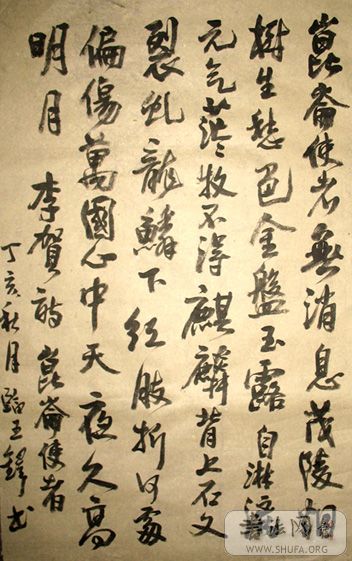 崑崙使者無消息茂陵
樹生愁色金盤玉露自淋
元气茫々收不得麒麟背上石文
裂虬龍鱗下红肢折何處
偏傷萬國心中天夜久高
明月 李賀詩 崑崙使者
丁亥秋月臨王鐸书
WWW.SHUFA.ORG